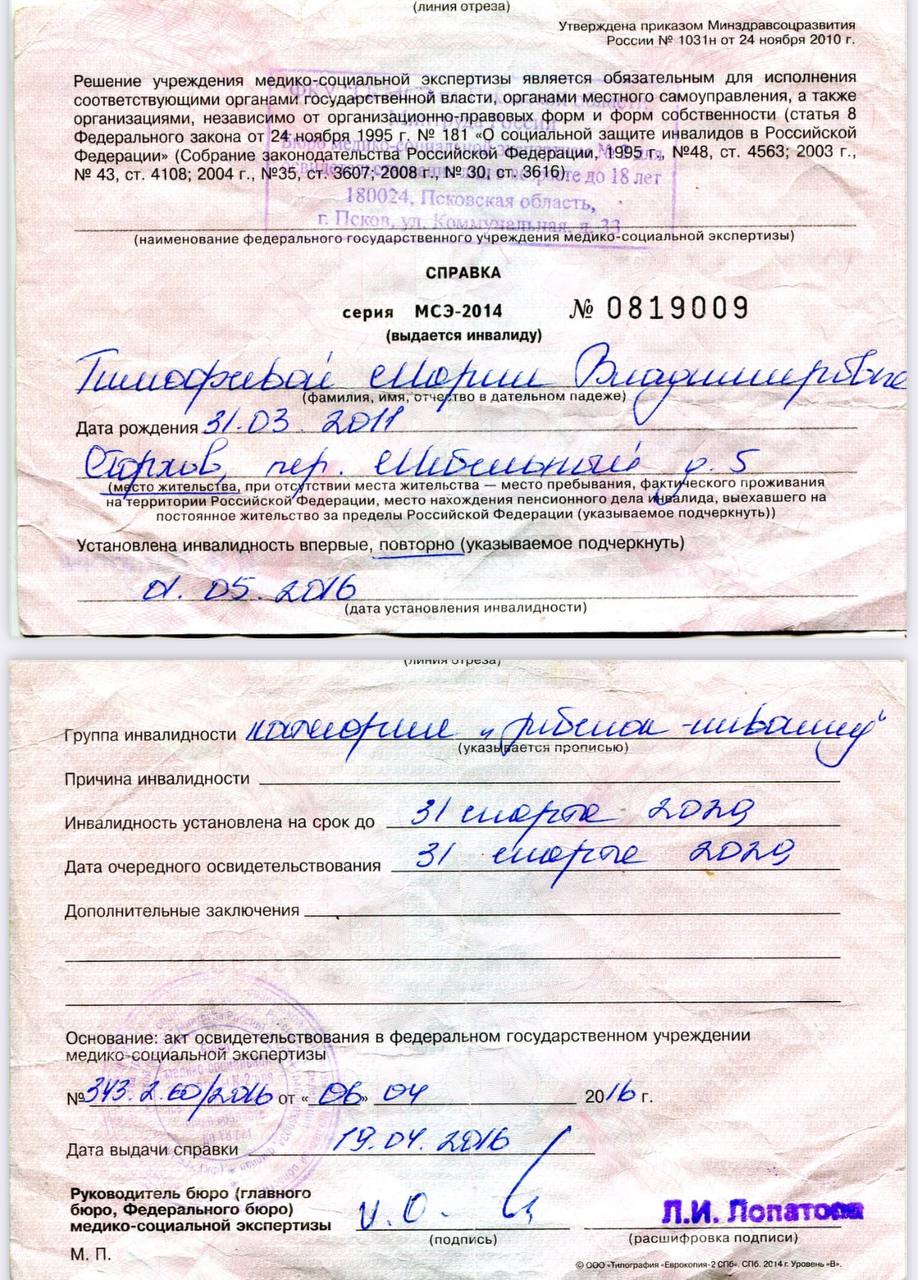 (линия отреза)
Утверждена приказом Минздравсоцразвития
России № 1031н от 24 ноября 2010 г.
Решение учреждения медико-социальной экспертизы является обязательным для исполнения
соответствующими органами государственной власти, органами местного самоуправления, а также
организациями, независимо от организационно-правовых форм и форм собственности (статья 8
Федерального закона от 24 ноября 1995 г. № 181 «О социальной защите инвалидов в Российской
Федерации» (Собрание законодательства Российской Федерации, 1995 г., №48, ст. 4563; 2003 г.,
№ 43, ст. 4108; 2004 г., №35, ст. 3607; 2008 г., № 30, ст. 3616)
до 18 лет
180024, Псковская область,
г. Псков, ул. Коммунальная, д. 33
(наименование федерального государственного учреждения медико-социальной экспертизы)
СПРАВКА
серия МСЭ-2014 № 0819009
(выдается инвалиду)
Тимофеевой Марии Владимировне
(фамилия, имя, отчество в дательном падеже)
Дата рождения 31.03.2011
пер. д. 5
(место жительства, при отсутствии места жительства — место пребывания, фактического проживания
на территории Российской Федерации, место нахождения пенсионного дела инвалида, выехавшего на
постоянное жительство за пределы Российской Федерации (указываемое подчеркнуть))
Установлена инвалидность впервые, повторно (указываемое подчеркнуть)
01.05.2016
(дата установления инвалидности)
(линия отреза)
Группа инвалидности категория „ребенок-инвалид“
(указывается прописью)
Причина инвалидности
Инвалидность установлена на срок до 31 марта 2029
Дата очередного освидетельствования 31 марта 2029
Дополнительные заключения
Основание: акт освидетельствования в федеральном государственном учреждении
медико-социальной экспертизы
№ 343.2.60/2016 от «06» 04 2016 г.
Дата выдачи справки 19.04.2016
Руководитель бюро (главного
бюро, Федерального бюро)
медико-социальной экспертизы И.О. Л.И. Лопатова
(подпись) (расшифровка подписи)
М. П.
© ООО «Типография «Еврокопия-2 СПб». СПб. 2014 г. Уровень «В».